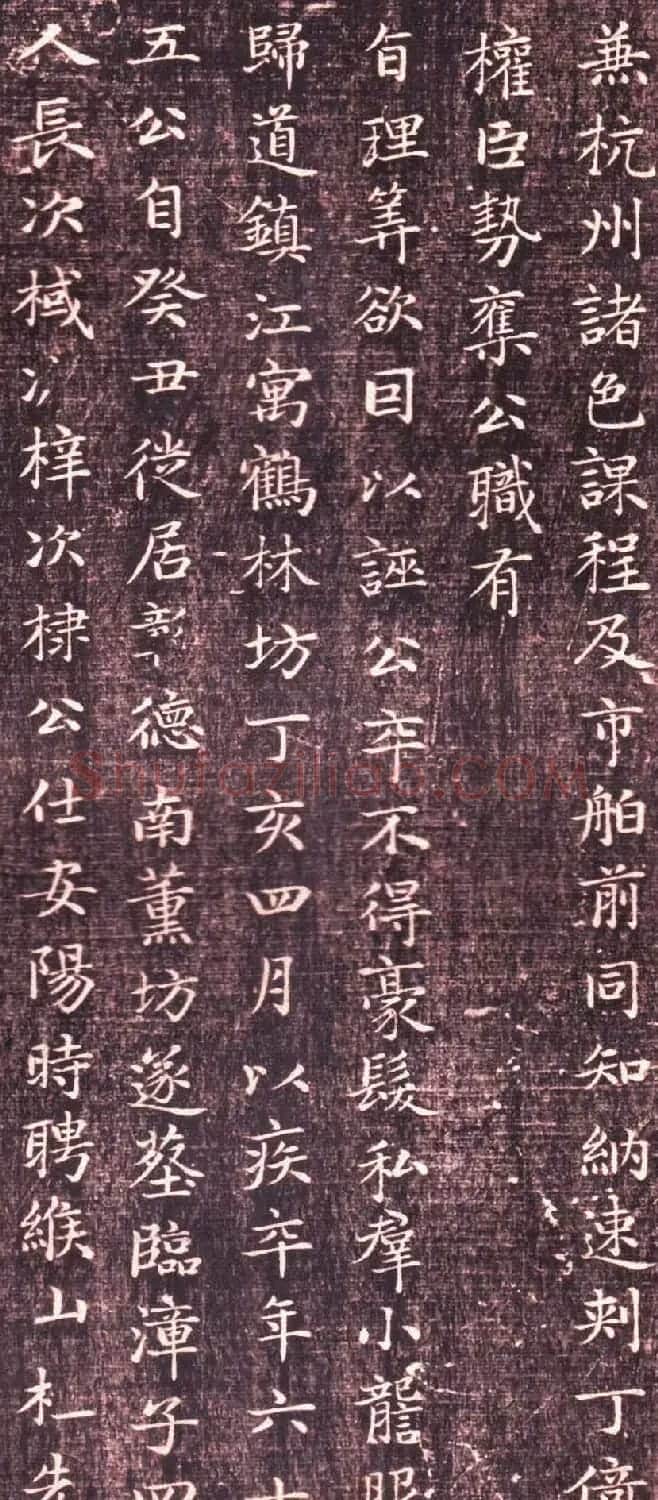 兼杭州諸色課程及市舶前同知納速刺丁倚
權臣勢奪公職有
旨理筭欲因以誣公卒不得豪髮私羣小讋
歸道鎮江寓鶴林坊丁亥四月以疾卒年六十
五公自癸丑徙居彰德南薰坊遂塟臨漳子四
人長次棫次梓次棣公仕安陽時聘緱山杜先
Shufaziliao.COM